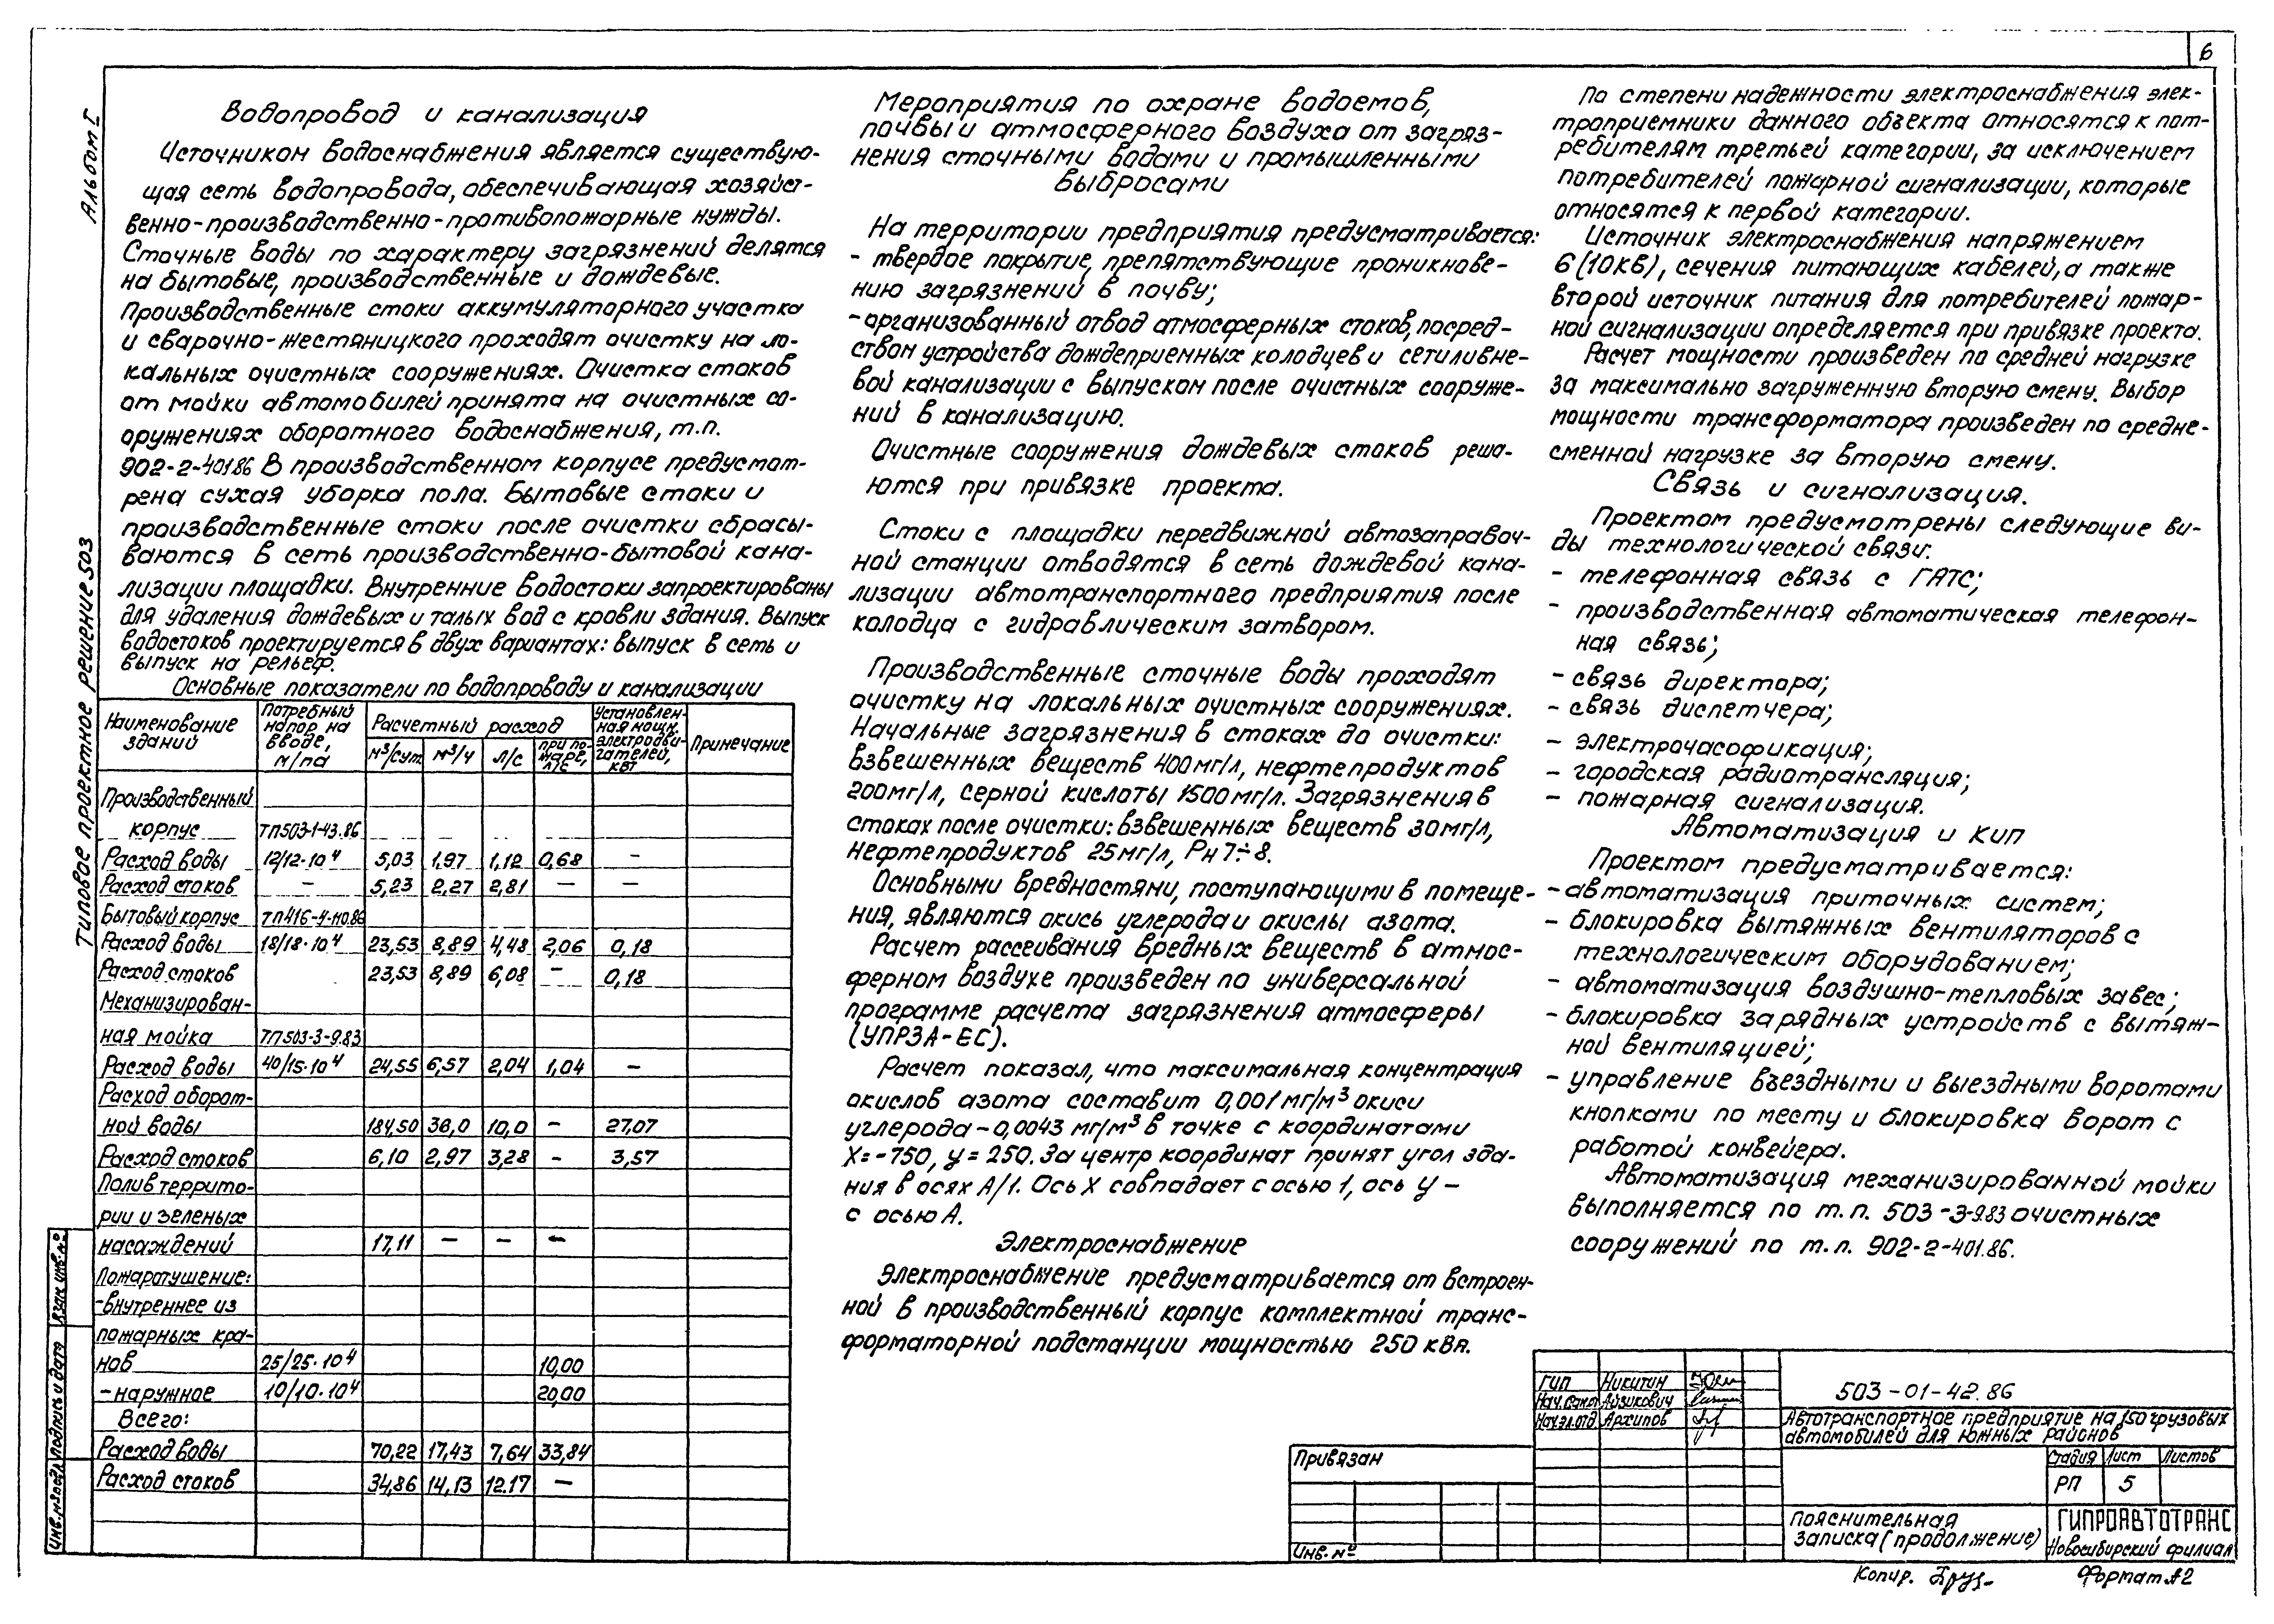 6
Альбом I
Типовое проектное решение 503
Водопровод и канализация
Источником водоснабжения является существую-
щая сеть водопровода, обеспечивающая хозяйст-
венно-производственно-противопожарные нужды.
Сточные воды по характеру загрязнений делятся
на бытовые, производственные и дождевые.
Производственные стоки аккумуляторного участка
и сварочно-жестяницкого проходят очистку на ло-
кальных очистных сооружениях. Очистка стоков
от мойки автомобилей принята на очистных со-
оружениях оборотного водоснабжения, т.п.
902-2-401.86 В производственном корпусе предусмот-
рена сухая уборка пола. Бытовые стоки и
производственные стоки после очистки сбрасы-
ваются в сеть производственно-бытовой кана-
лизации площадки. Внутренние водостоки запроектированы
для удаления дождевых и талых вод с кровли здания. Выпуск
водостоков проектируется в двух вариантах: выпуск в сеть и
выпуск на рельеф.
Основные показатели по водопроводу и канализации
Наименование зданий | Потребный напор на вводе, м/па | Расчетный расход | Установлен-ная мощн. электродви-гателей, квт | Примечание
м³/сут | м³/ч | л/с | при по-жаре, л/с
Производственный
корпус ТП503-1-43.86
Расход воды 12/12·10⁴ 5,03 1,97 1,12 0,68 –
Расход стоков – 5,23 2,27 2,81 – –
Бытовый корпус ТП416-4-110.86
Расход воды 18/18·10⁴ 23,53 8,89 4,48 2,06 0,18
Расход стоков 23,53 8,89 6,08 – 0,18
Механизирован-
ная мойка ТП503-3-9.83
Расход воды 40/15·10⁴ 24,55 6,57 2,04 1,04 –
Расход оборот-
ной воды 184,50 36,0 10,0 – 27,07
Расход стоков 6,10 2,97 3,28 – 3,57
Полив террито-
рии и зеленых
насаждений 17,11 – – –
Пожаротушение:
-внутреннее из
пожарных кра-
нов 25/25·10⁴ 10,00
-наружное 10/10·10⁴ 20,00
Всего:
Расход воды 70,22 17,43 7,64 33,84
Расход стоков 34,86 14,13 12.17 –
Мероприятия по охране водоемов,
почвы и атмосферного воздуха от загряз-
нения сточными водами и промышленными
выбросами
На территории предприятия предусматривается:
- твердое покрытие, препятствующие проникнове-
нию загрязнений в почву;
-организованный отвод атмосферных стоков, посред-
ством устройства дождеприемных колодцев и сети ливне-
вой канализации с выпуском после очистных сооруже-
ний в канализацию.
Очистные сооружения дождевых стоков реша-
ются при привязке проекта.
Стоки с площадки передвижной автозаправоч-
ной станции отводятся в сеть дождевой кана-
лизации автотранспортного предприятия после
колодца с гидравлическим затвором.
Производственные сточные воды проходят
очистку на локальных очистных сооружениях.
Начальные загрязнения в стоках до очистки:
взвешенных веществ 400мг/л, нефтепродуктов
200мг/л, серной кислоты 1500мг/л. Загрязнения в
стоках после очистки: взвешенных веществ 30мг/л,
нефтепродуктов 25мг/л, Рн 7÷8.
Основными вредностями, поступающими в помеще-
ния, являются окись углерода и окислы азота.
Расчет рассеивания вредных веществ в атмос-
ферном воздухе произведен по универсальной
программе расчета загрязнения атмосферы
(УПРЗА-ЕС).
Расчет показал, что максимальная концентрация
окислов азота составит 0,001мг/м³ окиси
углерода – 0,0043 мг/м³ в точке с координатами
X=-750, y=250. За центр координат принят угол зда-
ния в осях А/1. Ось X совпадает с осью 1, ось y –
с осью А.
Электроснабжение
Электроснабжение предусматривается от встроен-
ной в производственный корпус комплектной транс-
форматорной подстанции мощностью 250 кВа.
По степени надежности электроснабжения элек-
троприемники данного объекта относятся к пот-
ребителям третьей категории, за исключением
потребителей пожарной сигнализации, которые
относятся к первой категории.
Источник электроснабжения напряжением
6(10кВ), сечения питающих кабелей, а также
второй источник питания для потребителей пожар-
ной сигнализации определяется при привязке проекта.
Расчет мощности произведен по средней нагрузке
за максимально загруженную вторую смену. Выбор
мощности трансформатора произведен по средне-
сменной нагрузке за вторую смену.
Связь и сигнализация.
Проектом предусмотрены следующие ви-
ды технологической связи:
- телефонная связь с ГАТС;
- производственная автоматическая телефон-
ная связь;
- связь директора;
- связь диспетчера;
- электрочасофикация;
- городская радиотрансляция;
- пожарная сигнализация.
Автоматизация и КИП
Проектом предусматривается:
-автоматизация приточных систем;
- блокировка вытяжных вентиляторов с
технологическим оборудованием;
- автоматизация воздушно-тепловых завес;
-блокировка зарядных устройств с вытяж-
ной вентиляцией;
-управление въездными и выездными воротами
кнопками по месту и блокировка ворот с
работой конвейера.
Автоматизация механизированной мойки
выполняется по т.п. 503-3-9.83 очистных
сооружений по т.п. 902-2-401.86.
ГИП Никитин
Нач.сан.от Айзикович
Нач.эл.отд Архипов
503-01-42.86
Автотранспортное предприятие на 150 грузовых
автомобилей для южных районов
Стадия Лист Листов
РП 5
Пояснительная
записка (продолжение)
ГИПРОАВТОТРАНС
Новосибирский филиал
Привязан
Инв. №
Инв.№подл. Подпись и дата Взам. инв.№
Копир.
Формат А2